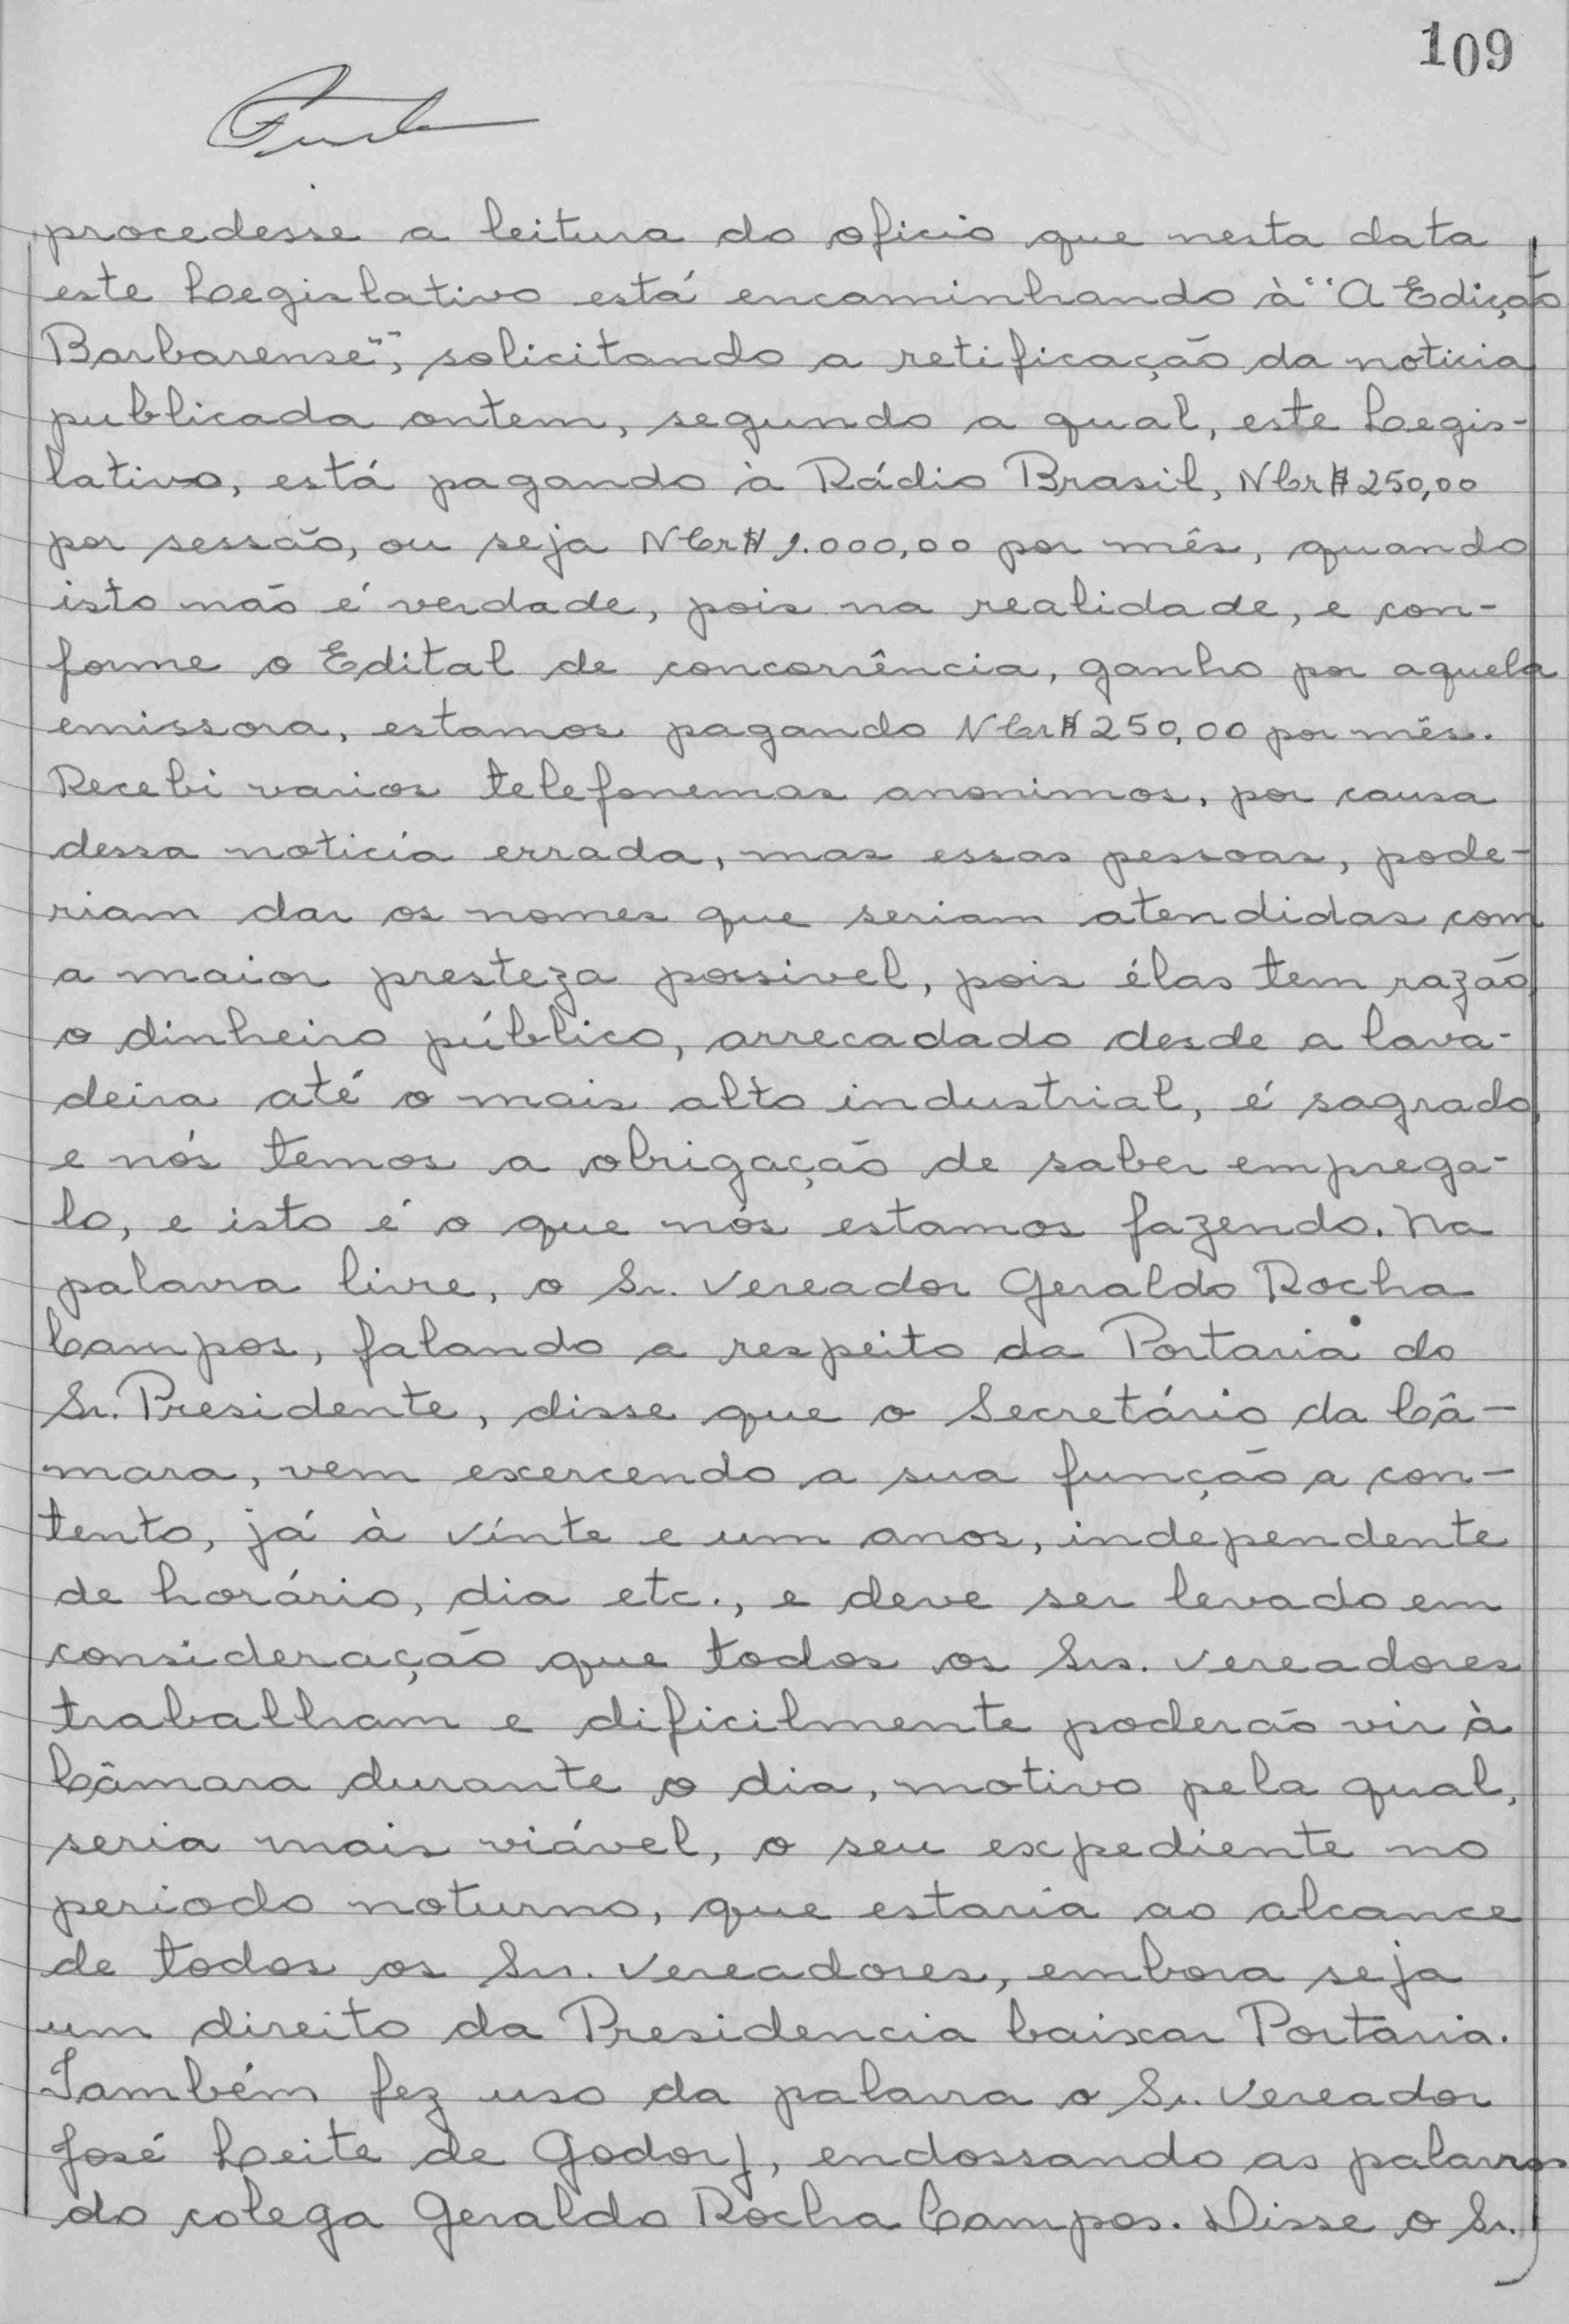 109
procedesse a leitura do oficio que nesta data
este Legislativo está encaminhando à "A Edição
Barbarense", solicitando a retificação da noticia
publicada ontem, segundo a qual, este Legis-
lativo, está pagando à Rádio Brasil, NCr$ 250,00
por sessão, ou seja NCr$ 1.000,00 por mês, quando
isto não é verdade, pois na realidade, e con-
forme o Edital de concorrência, ganho por aquela
emissora, estamos pagando NCr$ 250,00 por mês.
Recebi varios telefonemas anonimos, por causa
dessa noticia errada, mas essas pessoas, pode-
riam dar os nomes que seriam atendidas com
a maior presteza possivel, pois élas tem razão,
o dinheiro público, arrecadado desde a lava-
deira até o mais alto industrial, é sagrado,
e nós temos a obrigação de saber emprega-
lo, e isto é o que nós estamos fazendo. Na
palavra livre, o Sr. Vereador Geraldo Rocha
Campos, falando a respeito da Portaria do
Sr. Presidente, disse que o Secretário da Câ-
mara, vem exercendo a sua função a con-
tento, já à vinte e um anos, independente
de horário, dia etc., e deve ser levado em
consideração que todos os Srs. Vereadores
trabalham e dificilmente poderão vir à
Câmara durante o dia, motivo pela qual,
seria mais viável, o seu expediente no
periodo noturno, que estaria ao alcance
de todos os Srs. Vereadores, embora seja
um direito da Presidencia baixar Portaria.
Também fez uso da palavra o Sr. Vereador
José Leite de Godoy, endossando as palavras
do colega Geraldo Rocha Campos. Disse o Sr.